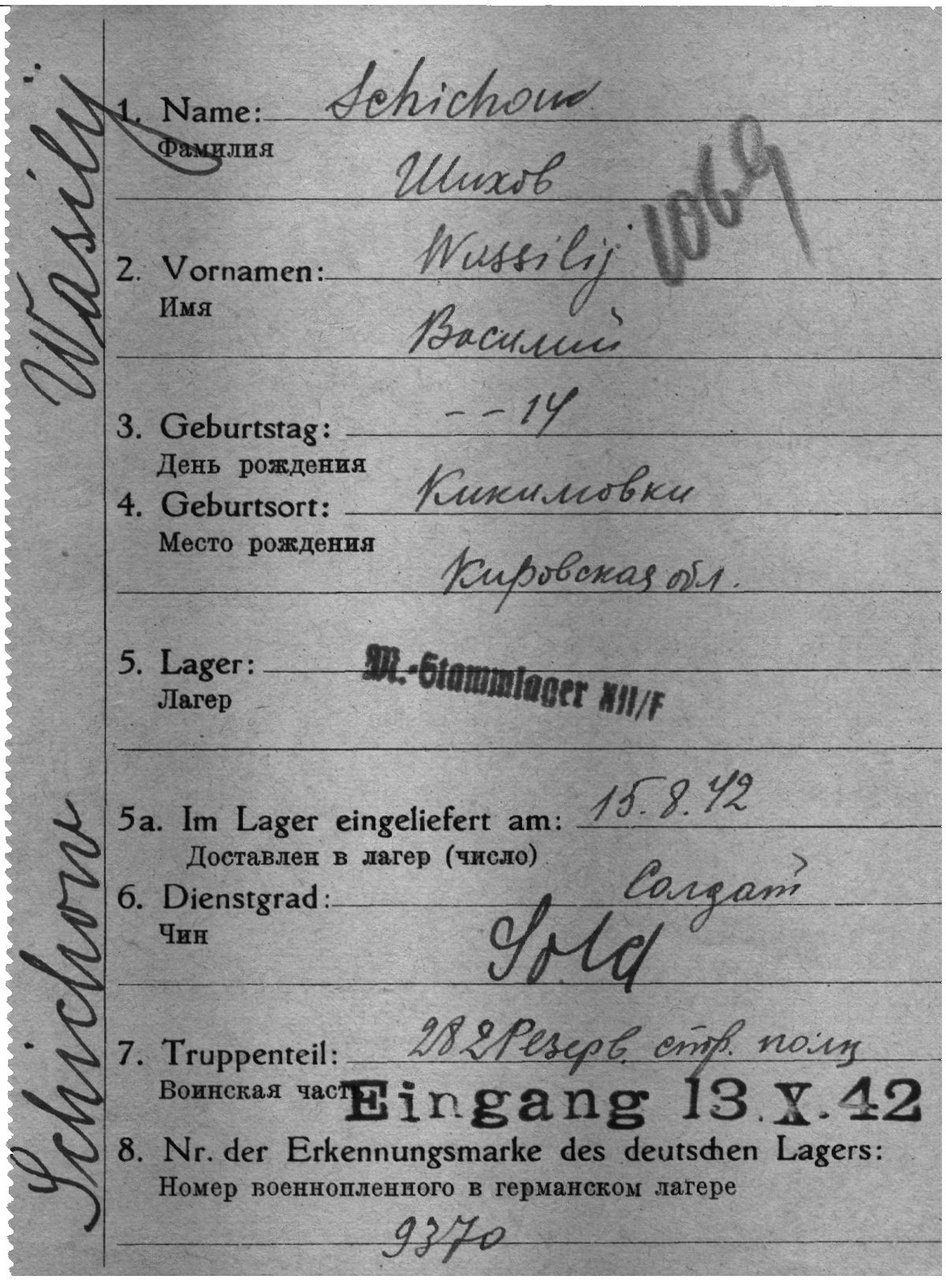 Wasilij
Schichow
1. Name: Schichow
Фамилия
Шихов
1069
2. Vornamen: Wassilij
Имя
Василий
3. Geburtstag: - - 14
День рождения
4. Geburtsort: Кикимовки
Место рождения
Кировская обл.
5. Lager: M.-Stammlager XII/F
Лагер
5a. Im Lager eingeliefert am: 15.8.42
Доставлен в лагер (число)
6. Dienstgrad: Солдат
Чин
Sold
7. Truppenteil: 282 Резерв. стр. полц
Воинская част
Eingang 13.X.42
8. Nr. der Erkennungsmarke des deutschen Lagers:
Номер военнопленного в германском лагере
9370